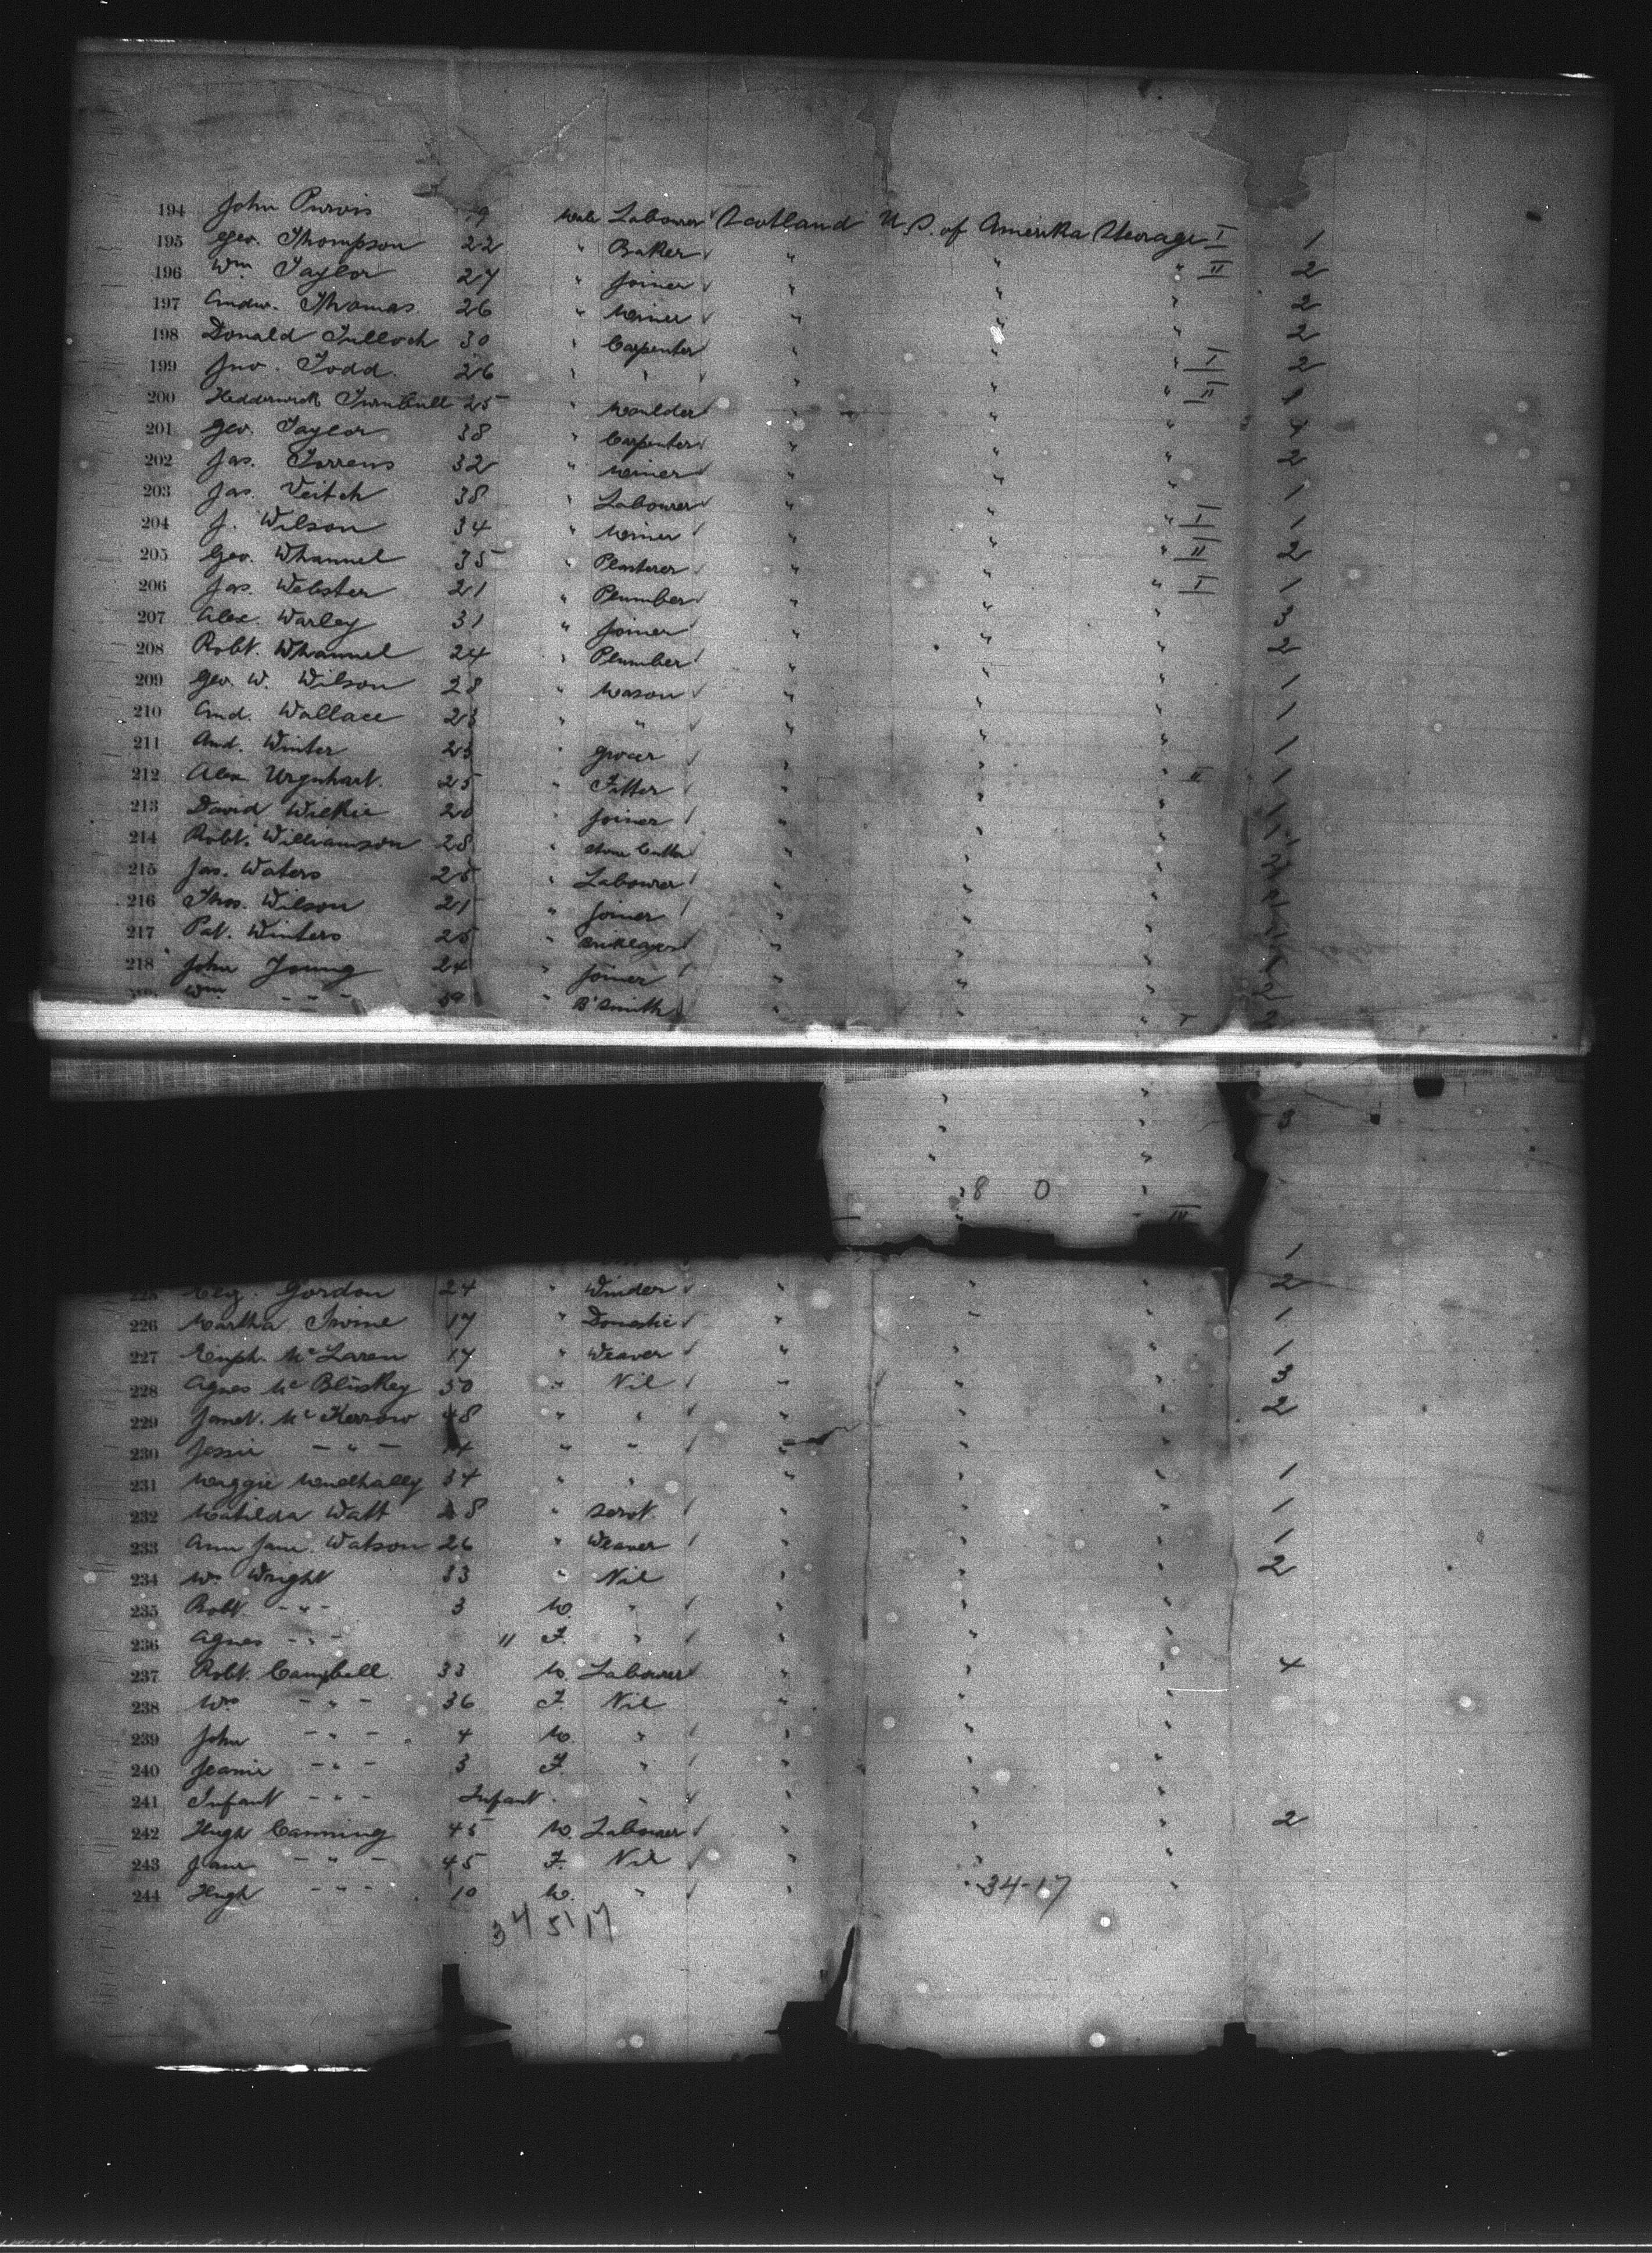 194 John Purvis 19 Male Labourer Scotland U.S. of Amerika Steerage I 1
195 Geo. Thompson 22 " Baker " " " II 2
196 Wm Taylor 27 " Joiner " " " 2
197 Andw. Thomas 26 " Miner " " " 2
198 Donald Tulloch 30 " Carpenter " " " I 2
199 Jno. Todd. 26 " " " " " II 1
200 Hedderwick Turnbull 25 " Moulder " " " 4
201 Geo. Taylor 38 " Carpenter " " " 2
202 Jas. Torrens 32 " Miner " " " 1
203 Jas. Veitch 38 " Labourer " " " I 1
204 J. Wilson 34 " Miner " " " II 2
205 Geo. Whannel 35 " Plasterer " " " I 1
206 Jas. Webster 21 " Plumber " " " 3
207 Alex. Warley 31 " Joiner " " " 2
208 Robt. Whannel 24 " Plumber " " " 1
209 Geo. W. Wilson 28 " Mason " " " 1
210 And. Wallace 23 " " " " " 1
211 And. Winter 23 " Grocer " " " II 1
212 Alex Urquhart. 25 " Fitter " " "
213 David Wilkie 20 " Joiner " " "
214 Robt. Williamson 28 " Stone Cutter " " "
215 Jas. Waters 25 " Labourer " " "
216 Thos. Wilson 21 " Joiner " " "
217 Pat. Winters 25 " " " "
218 John Young 24 " Joiner " " " 2
Wm - " - " B'Smith " " "
" " 3
" "
" "
" 8 0 "
" " IV
1
225 Eliz. Gordon 24 " Winder " " 2
226 Martha Irvine 17 " Domestic " " 1
227 Euph. McLaren 17 " Weaver " " " 1
228 Agnes Mc 50 " Nil " " " 3
229 Janet. McKerrow 48 " " " " " 2
230 Jessie - " - 14 " " " " "
231 Maggie 34 " " " " " 1
232 Matilda Watt 28 " Servt. " " " 1
233 Ann Jane Watson 26 " Weaver " " " 1
234 Mrs Wright 33 " Nil " " " 2
235 Robt. - " - 3 M. " " " "
236 Agnes - " - " F. " " " "
237 Robt. Campbell. 33 M. Labourer " " " 4
238 Mrs - " - 36 F. Nil " " "
239 John - " - 4 M. " " " "
240 Jeanie - " - 3 F. " " " "
241 Infant - " - Infant. " " " "
242 Hugh Canning 45 M. Labourer " " " 2
243 Jane - " - 45 F. Nil " " "
244 Hugh - " - 10 M. " " " 34-17 "
34 51 17